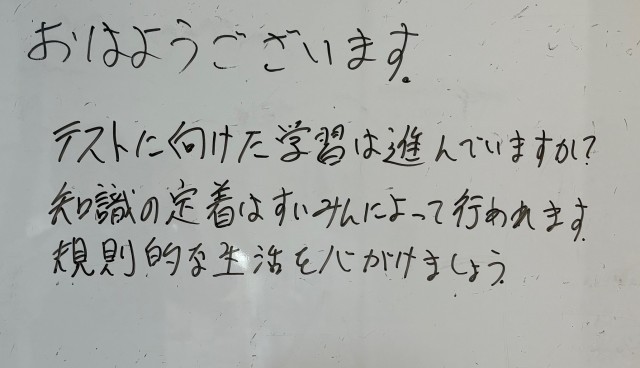 おはようございます.
テストに向けた学習は進んでいますか?
知識の定着はすいみんによって行われます.
規則的な生活を心がけましょう.